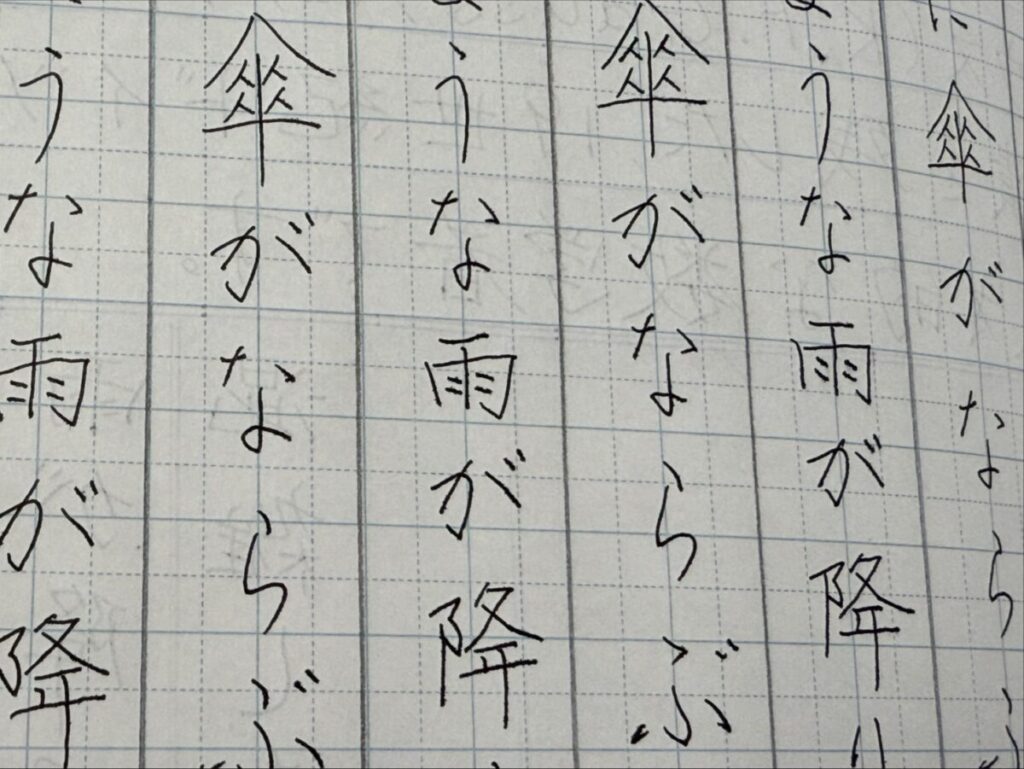 に傘がならぶ
ような雨が降り
傘がならぶ
うな雨が降
傘がならぶ
うな雨が降